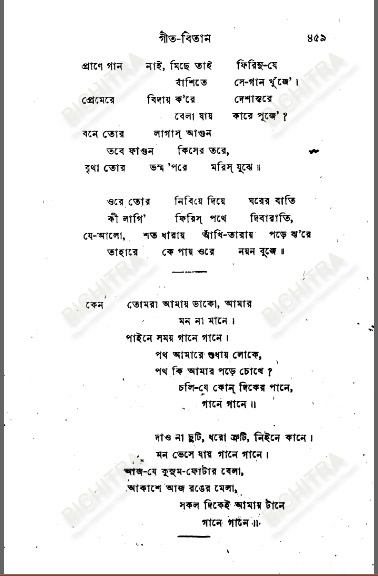 গীত-বিতান ৪৫৯
প্রাণে গান নাই, মিছে তাই ফিরিনু-যে
বাঁশিতে সে-গান খুঁজে'।
প্রেমেরে বিদায় ক'রে দেশান্তরে
বেলা যায় কারে পূজে'?
বনে তোর লাগাস্ আগুন
তবে ফাগুন কিসের তরে,
বৃথা তোর ভস্ম 'পরে মরিস্ যুঝে॥
ওরে তোর নিবিয়ে দিয়ে ঘরের বাতি
কী লাগি' ফিরিস্ পথে দিবারাতি,
যে-আলো, শত ধারায় আঁখি-তারায় পড়ে ঝ'রে
তাহারে কে পায় ওরে নয়ন বুজে॥
কেন তোমরা আমায় ডাকো, আমার
মন না মানে।
পাইনে সময় গানে গানে।
পথ আমারে শুধায় লোকে,
পথ কি আমার পড়ে চোখে?
চলি-যে কোন্ দিকের পানে,
গানে গানে॥
দাও না ছুটি, ধরো ত্রুটি, নিইনে কানে।
মন ভেসে যায় গানে গানে।
আজ-যে কুসুম-ফোটার বেলা,
আকাশে আজ রঙের মেলা,
সকল দিকেই আমায় টানে
গানে গানে॥
BICHITRA
BICHITRA
BICHITRA
BICHITRA
BICHITRA
BICHITRA